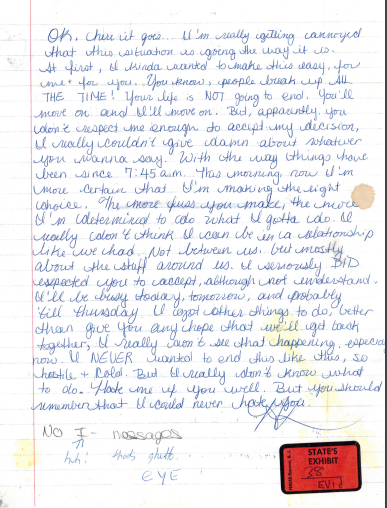 OK, here it goes... I'm really getting annoyed
that this situation is going the way it is.
At first, I kinda wanted to make this easy, for
me + for you. You know, people break up All
THE TIME! Your life is NOT going to end. You'll
move on and I'll move on. But, apparently, you
don't respect me enough to accept my decision,
I really couldn't give damn about whatever
you wanna say. With the way things have
been since 7:45 a.m. This morning now I'm
more certain that I'm making the right
choice. The more fuss you make, the more
I'm determined to do what I gotta do. I
really don't think I can be in a relationship
like we had. Not between us. but mostly
about the stuff around us. I seriously DID
expected you to accept, although not understand.
I'll be busy today, tomorrow, and probably
'till thursday. I got other things to do, better
than give you any hope that we'll get back
together, I really don't see that happening, especial
now. I NEVER wanted to end this like this, so
hostile + cold. But I really don't know what
to do. Hate me if you will. But you should
remember that I could never hate you.
NO I - messages
huh? thats ghett.
EYE
STATE'S
EXHIBIT
38
EVID